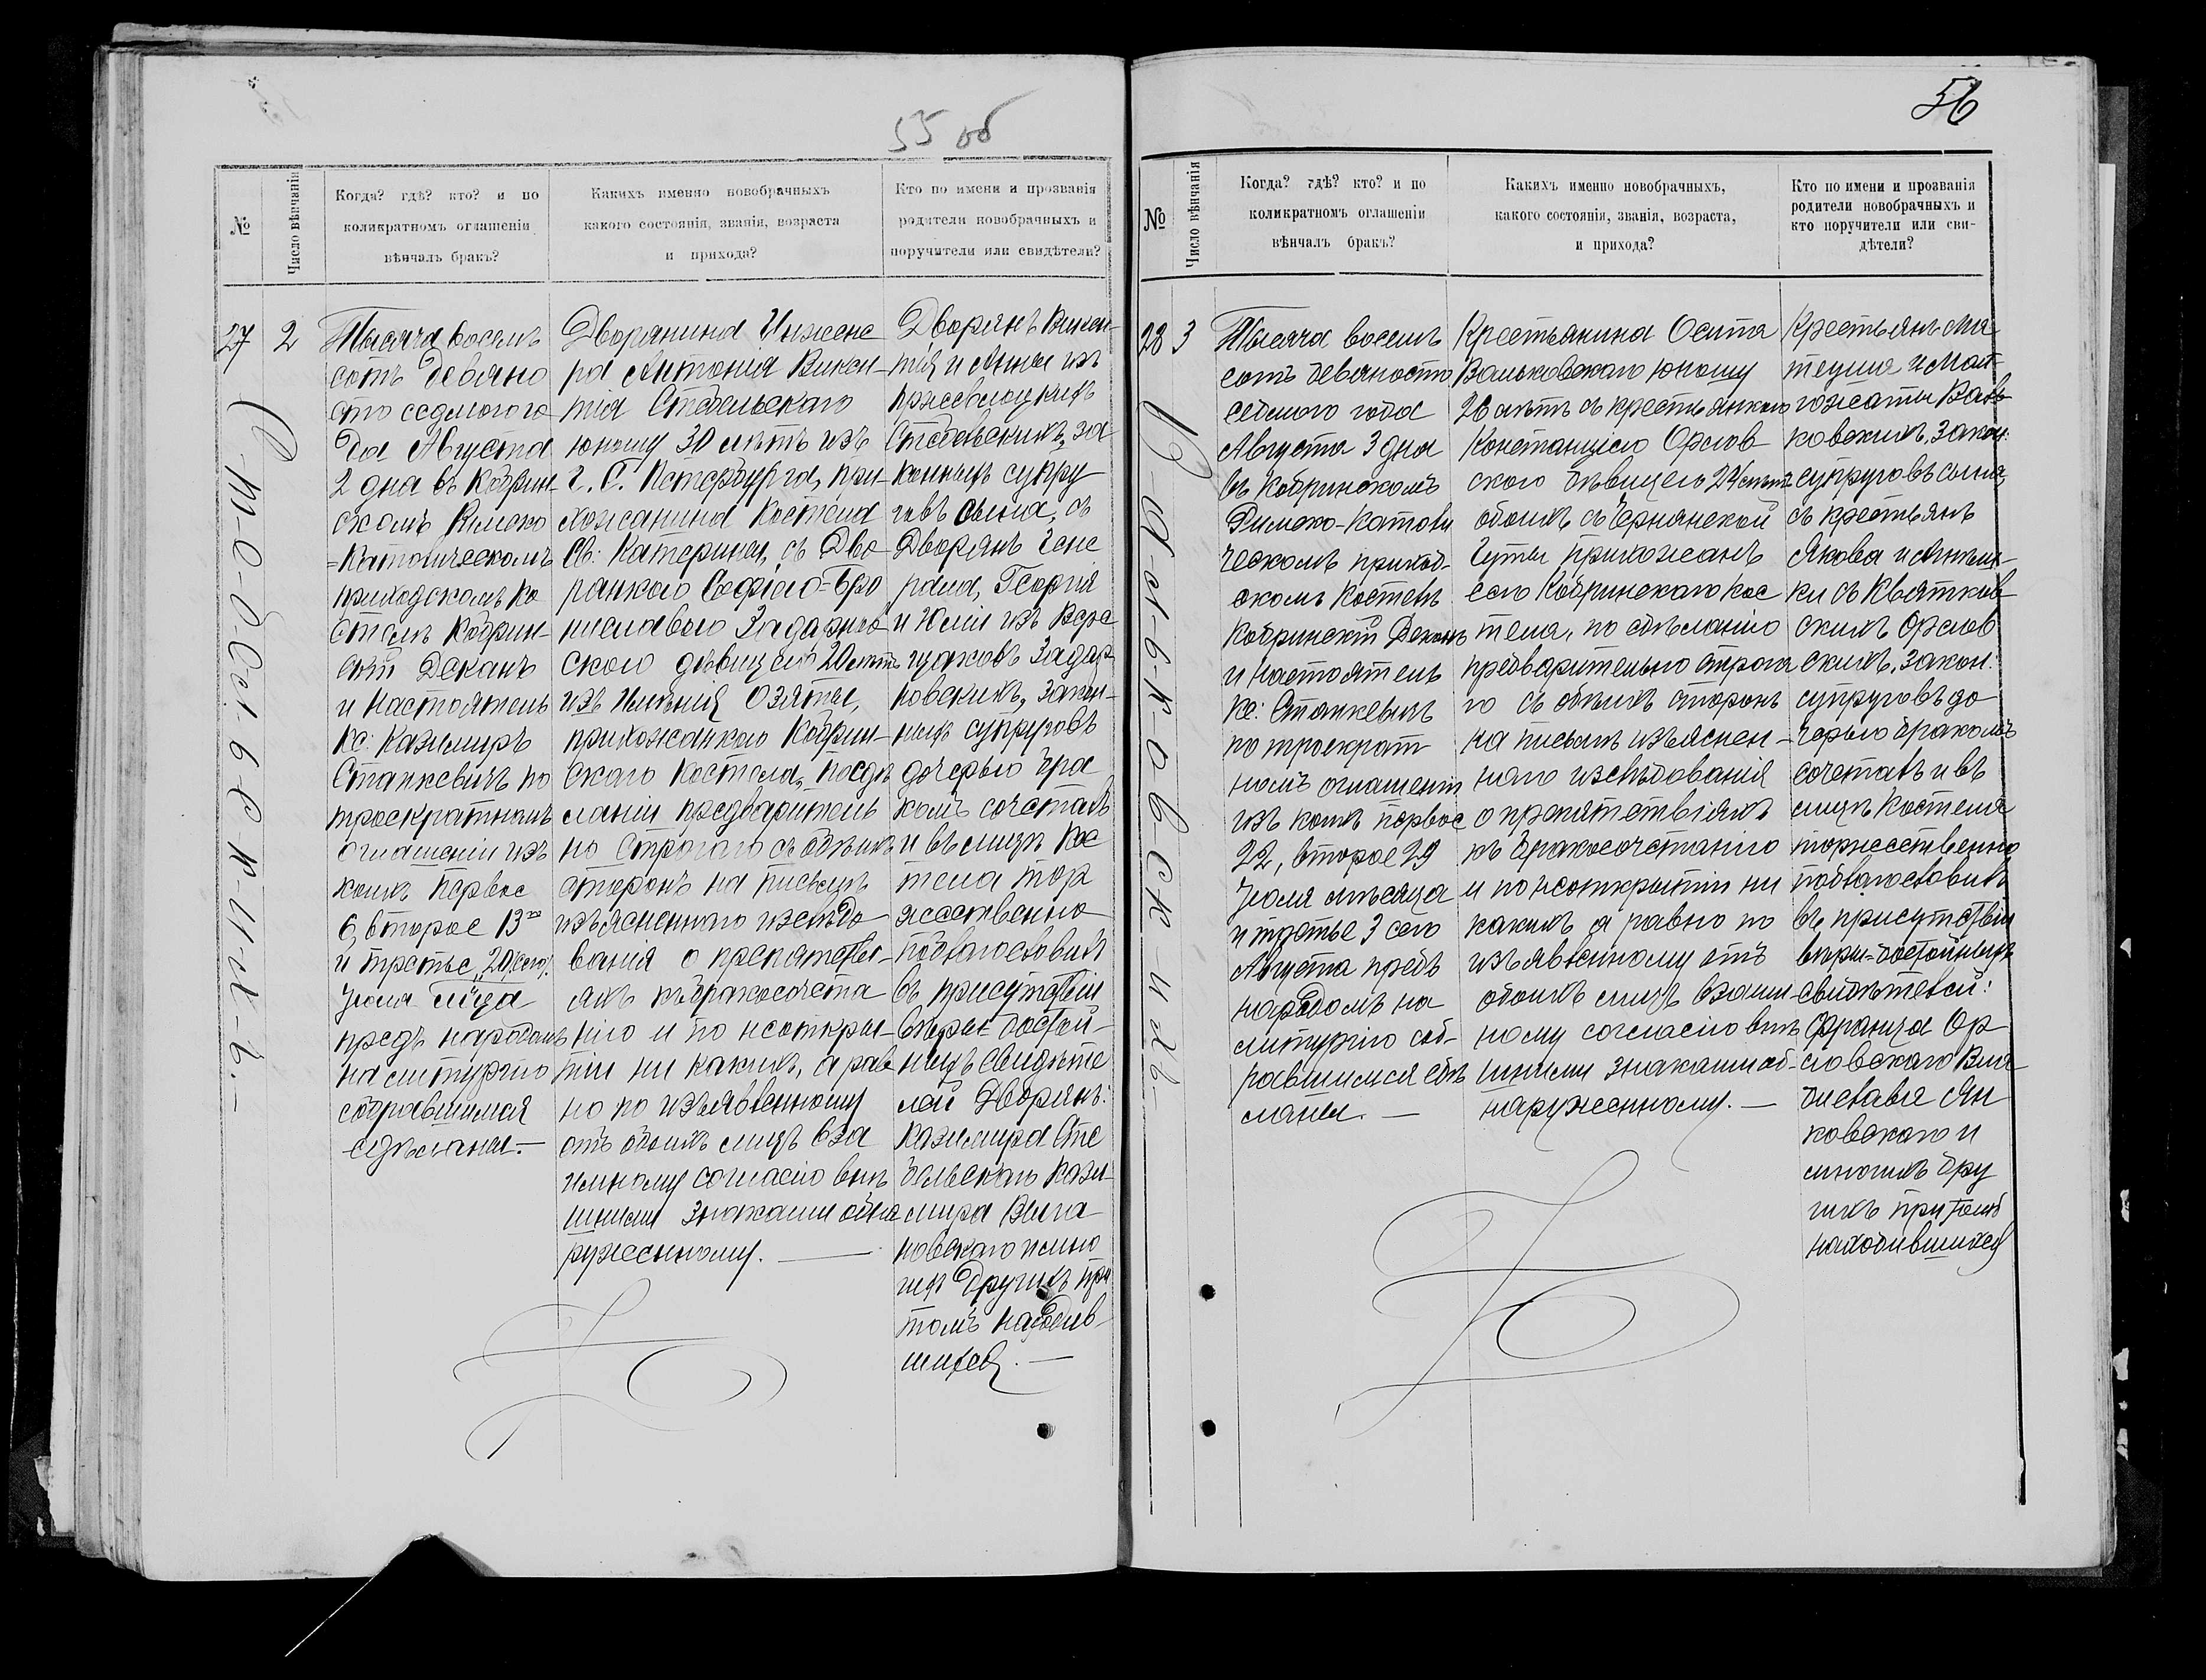 55 об
№
Число вѣнчанія
Когда? гдѣ? кто? и по
коликратномъ оглашеніи
вѣнчалъ бракъ?
Какихъ именно новобрачныхъ
какого состоянія, званія, возраста
и прихода?
Кто по имени и прозванія
родители новобрачныхъ и
поручители или свидѣтели?
27
2
С-т-е-б-е-л-ь-с-к-и-х-ъ.-
Тысяча восемъ
сотъ девяно
сто седмого го
да Августа
2 дня въ Кобрин-
скомъ Римско
=Католическомъ
приходскомъ Ко
стелѣ Кобрин-
скій Деканъ
и Настоятель
Кс: Казимиръ
Станкевичъ по
троекратномъ
оглашеніи изъ
коихъ первое
6, второе 13го
и третье 20 сего
Іюля м-ца
предъ народомъ
на литургію
собравшимся
сдѣланы.-
Дворянина Инжене
ра Антонія Викен-
тія Стебельскаго
юношу 30 лѣтъ изъ
г. С. Петербурга, при-
хожанина Костела
Св: Катерины, съ Дво-
рянкою Софіею-Бро
ниславою Задарнов
скою дѣвицею 20 лѣтъ
изъ Имѣнія Озяты,
прихожанкою Кобрин-
скаго Костела, по сдѣ
ланіи предваритель
но Строгаго съ обѣихъ
сторонъ на письмѣ
изъясненнаго изслѣдо-
ванія о препятстві-
яхъ къ бракосочета
нію и по неоткры-
тіи ни какихъ, а рав
но по изъявленному
отъ обоихъ лицъ вза
имному согласію внѣ
шними знаками обна
руженному.
Дворянъ Викен-
тія и Анны изъ
Пржевлоцкихъ
Стебельскихъ, за
конныхъ супру
говъ сына, съ
Дворянъ Гене
рала, Георгія
и Юліи изъ Вере
щаковъ Задар
новскихъ, закон-
ныхъ супруговъ
дочерью бра
комъ сочеталъ
и въ лицѣ Кос
тела тор
жественно
поблагословилъ
въ присутствіи
вѣры-достой-
ныхъ свидѣте
лей Дворянъ:
Казимира Сте
бельскаго Кази-
мира Выга
новскаго и мно
гихъ другихъ при
томъ находив-
шихся.-
56
№
Число вѣнчанія
Когда? гдѣ? кто? и по
коликратномъ оглашеніи
вѣнчалъ бракъ?
Какихъ именно новобрачныхъ,
какого состоянія, званія, возраста,
и прихода?
Кто по имени и прозванія
родители новобрачныхъ и
кто поручители или сви-
дѣтели?
28
3
В-а-л-ь-к-о-в-с-к-и-х-ъ-
Тысяча восемъ
сотъ девяносто
седмого года
Августа 3 дня
въ Кобринскомъ
Римско-Католи
ческомъ приход-
скомъ Костелѣ
Кобринскій Деканъ
и Настоятель
Кс: Станкевичъ
по троекрат
номъ оглашеніи
изъ коихъ первое
22, второе 29
Іюля мѣсяца
и третье 3 сего
Августа предъ
народомъ на
литургію соб-
равшимся сдѣ
ланы.-
Крестьянина Осипа
Вальковскаго юношу
26 лѣтъ съ крестьянкою
Констанціею Орлов
скою дѣвицею 24 лѣтъ
обоихъ съ Чернянской
Гуты прихожанъ
сего Кобринскаго Кос
тела, по сдѣланію
предварительно строга
го съ обѣихъ сторонъ
на письмѣ изъяснен-
наго изслѣдованія
о препятствіяхъ
къ бракосочетанію
и по неоткрытіи ни
какихъ а равно по
изъявленному отъ
обоихъ лицъ взаим-
ному согласію внѣ
шними знаками об-
наруженному.-
Крестьянъ Ма
теуша и Мал-
гожаты Валь
ковскихъ, закон:
супруговъ сына,
съ крестьянъ
Якова и Анжели-
ки съ Квятков-
скихъ Орлов
скихъ, закон:
супруговъ до
черью бракомъ
сочеталъ и въ
лицѣ Костела
торжественно
поблагословилъ
въ присутствіи
вѣры-достойныхъ
свидѣтелей:
Франца Ор-
ловскаго Вла
дислава Ян
ковскаго и
многихъ дру
гихъ при томъ
находившихся